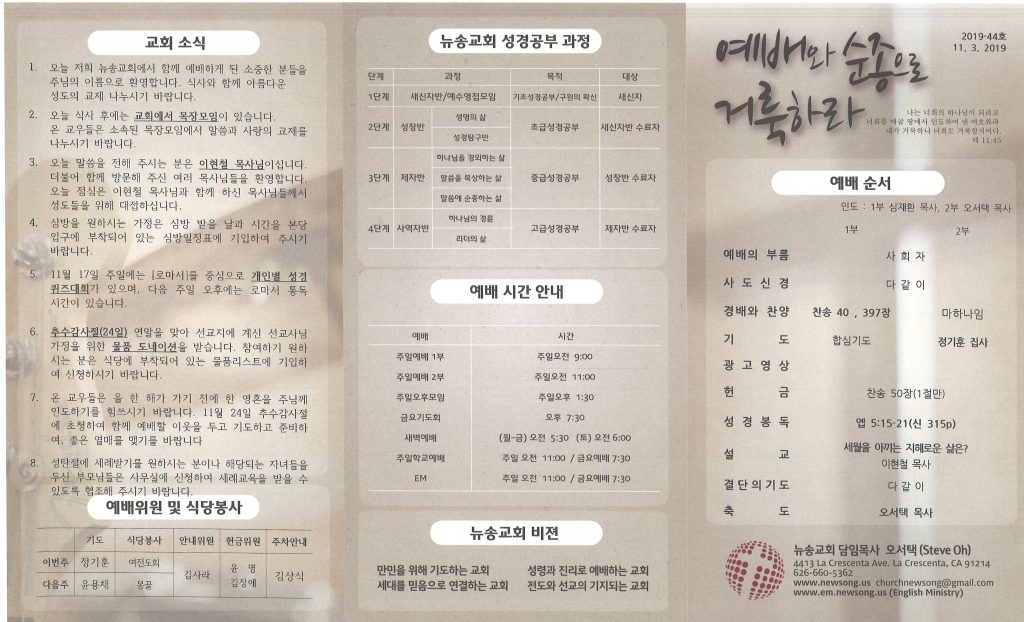 교회 소식
1. 오늘 저희 뉴송교회에서 함께 예배하게 된 소중한 분들을
주님의 이름으로 환영합니다. 식사와 함께 아름다운
성도의 교제 나누시기 바랍니다.
2. 오늘 식사 후에는 교회에서 목장모임이 있습니다.
온 교우들은 소속된 목장모임에서 말씀과 사랑의 교제를
나누시기 바랍니다.
3. 오늘 말씀을 전해 주시는 분은 이현철 목사님이십니다.
더불어 함께 방문해 주신 여러 목사님들을 환영합니다.
오늘 점심은 이현철 목사님과 함께 하신 목사님들께서
성도들을 위해 대접하십니다.
4. 심방을 원하시는 가정은 심방 받을 날과 시간을 본당
입구에 부착되어 있는 심방일정표에 기입하여 주시기
바랍니다.
5. 11월 17일 주일에는 [로마서]를 중심으로 개인별 성경
퀴즈대회가 있으며, 다음 주일 오후에는 로마서 통독
시간이 있습니다.
6. 추수감사절(24일) 연말을 맞아 선교지에 계신 선교사님
가정을 위한 물품 도네이션을 받습니다. 참여하기 원하
시는 분은 식당에 부착되어 있는 물품리스트에 기입하
여 신청하시기 바랍니다.
7. 온 교우들은 올 한 해가 가기 전에 한 영혼을 주님께
인도하기를 힘쓰시기 바랍니다. 11월 24일 추수감사절
에 초청하여 함께 예배할 이웃을 두고 기도하고 준비하
여, 좋은 열매를 맺기를 바랍니다
8. 성탄절에 세례받기를 원하시는 분이나 해당되는 자녀들을
두신 부모님들은 사무실에 신청하여 세례교육을 받을 수
있도록 협조해 주시기 바랍니다.
예배위원 및 식당봉사
기도 식당봉사 안내위원 헌금위원 주차안내
이번주 정기훈 여전도회 김사라 윤 명 김정애 김상식
다음주 윤용채 몽골
뉴송교회 성경공부 과정
단계 과정 목적 대상
1단계 새신자반/예수영접모임 기초성경공부/구원의 확신 새신자
2단계 성장반 생명의 삶 초급성경공부 새신자반 수료자
성경탐구반
3단계 제자반 하나님을 경외하는 삶 중급성경공부 성장반 수료자
말씀을 묵상하는 삶
말씀에 순종하는 삶
4단계 사역자반 하나님의 경륜 고급성경공부 제자반 수료자
리더의 삶
예배 시간 안내
예배 시간
주일예배 1부 주일오전 9:00
주일예배 2부 주일오전 11:00
주일오후모임 주일오후 1:30
금요기도회 오후 7:30
새벽예배 (월-금) 오전 5:30 (토) 오전 6:00
주일학교예배 주일 오전 11:00 / 금요예배 7:30
EM 주일 오전 11:00 / 금요예배 7:30
뉴송교회 비젼
만민을 위해 기도하는 교회 성령과 진리로 예배하는 교회
세대를 믿음으로 연결하는 교회 전도와 선교의 기지되는 교회
예배와 순종으로
거룩하라
2019-44호
11. 3. 2019
나는 너희의 하나님이 되려고
너희를 애굽 땅에서 인도하여 낸 여호와라
내가 거룩하니 너희도 거룩할지어다.
레 11:45
예배 순서
인도 : 1부 심재환 목사, 2부 오서택 목사
1부 2부
예배의 부름 사 회 자
사 도 신 경 다 같 이
경배와 찬양 찬송 40 , 397장 마하나임
기 도 합심기도 정기훈 집사
광 고 영 상
헌 금 찬송 50장(1절만)
성 경 봉 독 엡 5:15-21(신 315p)
설 교 세월을 아끼는 지혜로운 삶은?
이현철 목사
결단의기도 다 같 이
축 도 오서택 목사
뉴송교회 담임목사 오서택 (Steve Oh)
4413 La Crescenta Ave. La Crescenta, CA 91214
626-660-5362
www.newsong.us churchnewsong@gmail.com
www.em.newsong.us (English Ministry)